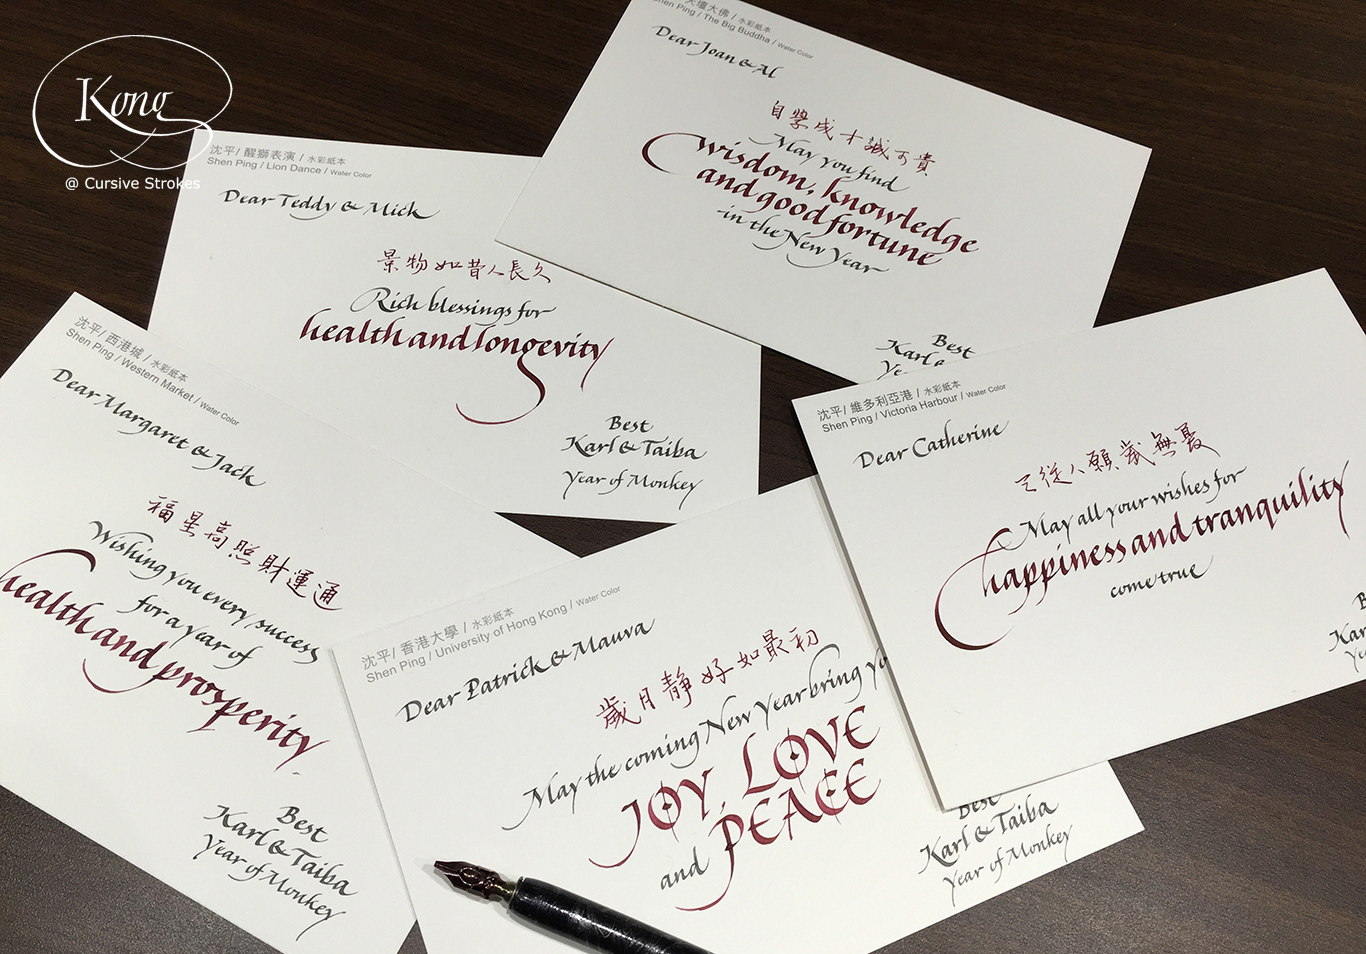 Kong
@ Cursive Strokes
天壇大佛 / 水彩紙本
Shen Ping / The Big Buddha / Water Color
Dear Joan & Al
自學成才誠可貴
May you find
wisdom, knowledge
and good fortune
in the New Year
Best
Karl
沈平/ 醒獅表演 / 水彩紙本
Shen Ping / Lion Dance / Water Color
Dear Teddy & Mick
景物如昔人長久
Rich blessings for
health and longevity
Best
Karl & Taiba
Year of Monkey
沈平/ 西港城 / 水彩紙本
Shen Ping / Western Market / Water Color
Dear Margaret & Jack
福星高照財運通
Wishing you every success
for a year of
health and prosperity.
Best
Karl & Taiba
Year of Monkey
沈平/ 香港大學 / 水彩紙本
Shen Ping / University of Hong Kong / Water Color
Dear Patrick & Mauva
歲月靜好如最初
May the coming New Year bring
JOY, LOVE
and PEACE
Best
Karl & Taiba
Year of Monkey
沈平/ 維多利亞港 / 水彩紙本
Shen Ping / Victoria Harbour / Water Color
Dear Catherine
從人願歲無憂
May all your wishes for
happiness and tranquility
come true